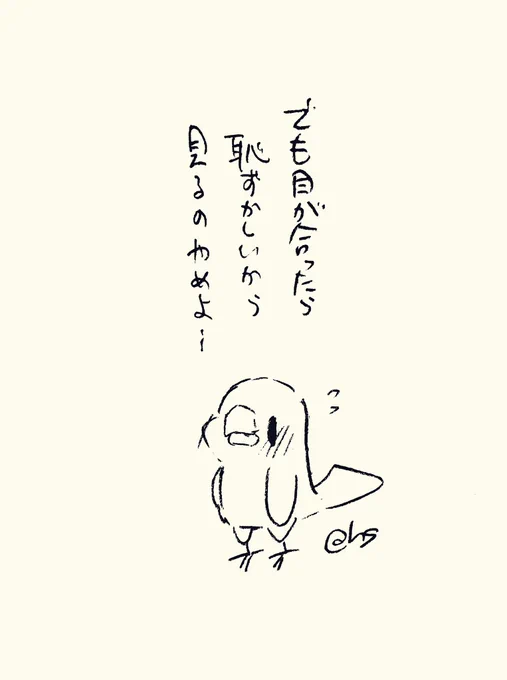 でも目が合ったら
恥ずかしいから
見るのやめよ…
@hs